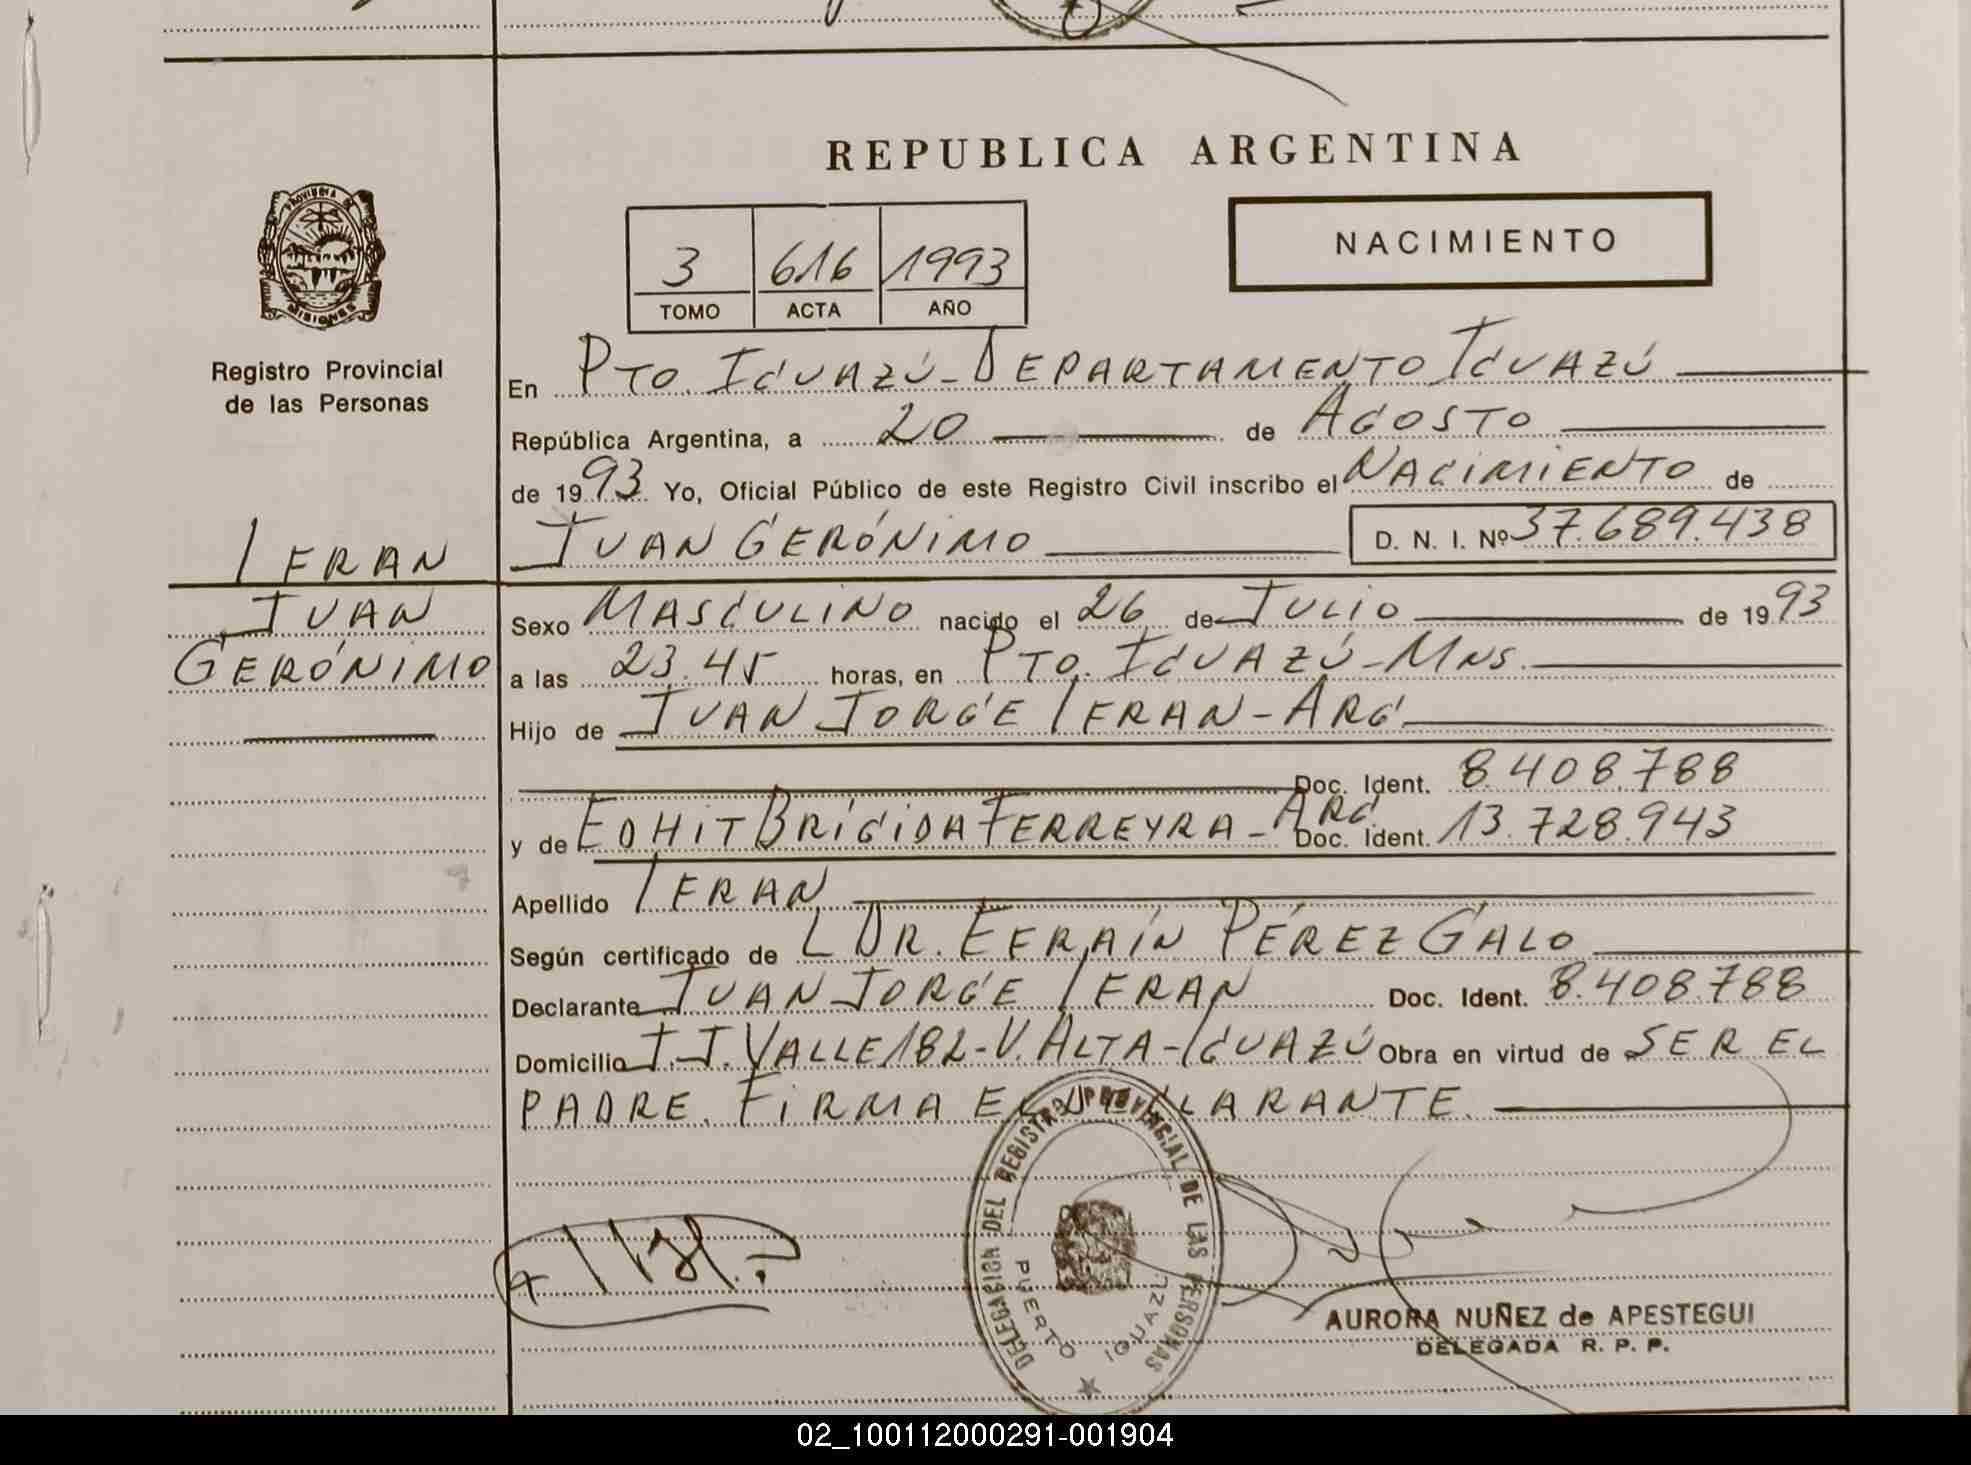 REPUBLICA ARGENTINA
PROVINCIA DE
MISIONES
NACIMIENTO
3 616 1993
TOMO ACTA AÑO
Registro Provincial
de las Personas
En PTO. IGUAZÚ - DEPARTAMENTO IGUAZÚ
República Argentina, a 20 de AGOSTO
de 1993 Yo, Oficial Público de este Registro Civil inscribo el NACIMIENTO de
IFRAN JUAN GERÓNIMO D. N. I. Nº 37.689.438
JUAN
GERÓNIMO
Sexo MASCULINO nacido el 26 de JULIO de 1993
a las 23.45 horas, en PTO. IGUAZÚ - MNS.
Hijo de JUAN JORGE IFRAN - ARG
Doc. Ident. 8.408.788
y de EDHIT BRÍGIDA FERREYRA - ARG. Doc. Ident. 13.728.943
Apellido IFRAN
Según certificado de L DR. EFRAÍN PÉREZ GALO
Declarante JUAN JORGE IFRAN Doc. Ident. 8.408.788
Domicilio J.J. VALLE 182 - V. ALTA - IGUAZÚ Obra en virtud de SER EL
PADRE. FIRMA EL DECLARANTE.
DELEGACION DEL REGISTRO PROVINCIAL DE LAS PERSONAS
PUERTO IGUAZU
AURORA NUÑEZ de APESTEGUI
DELEGADA R. P. P.
02_100112000291-001904